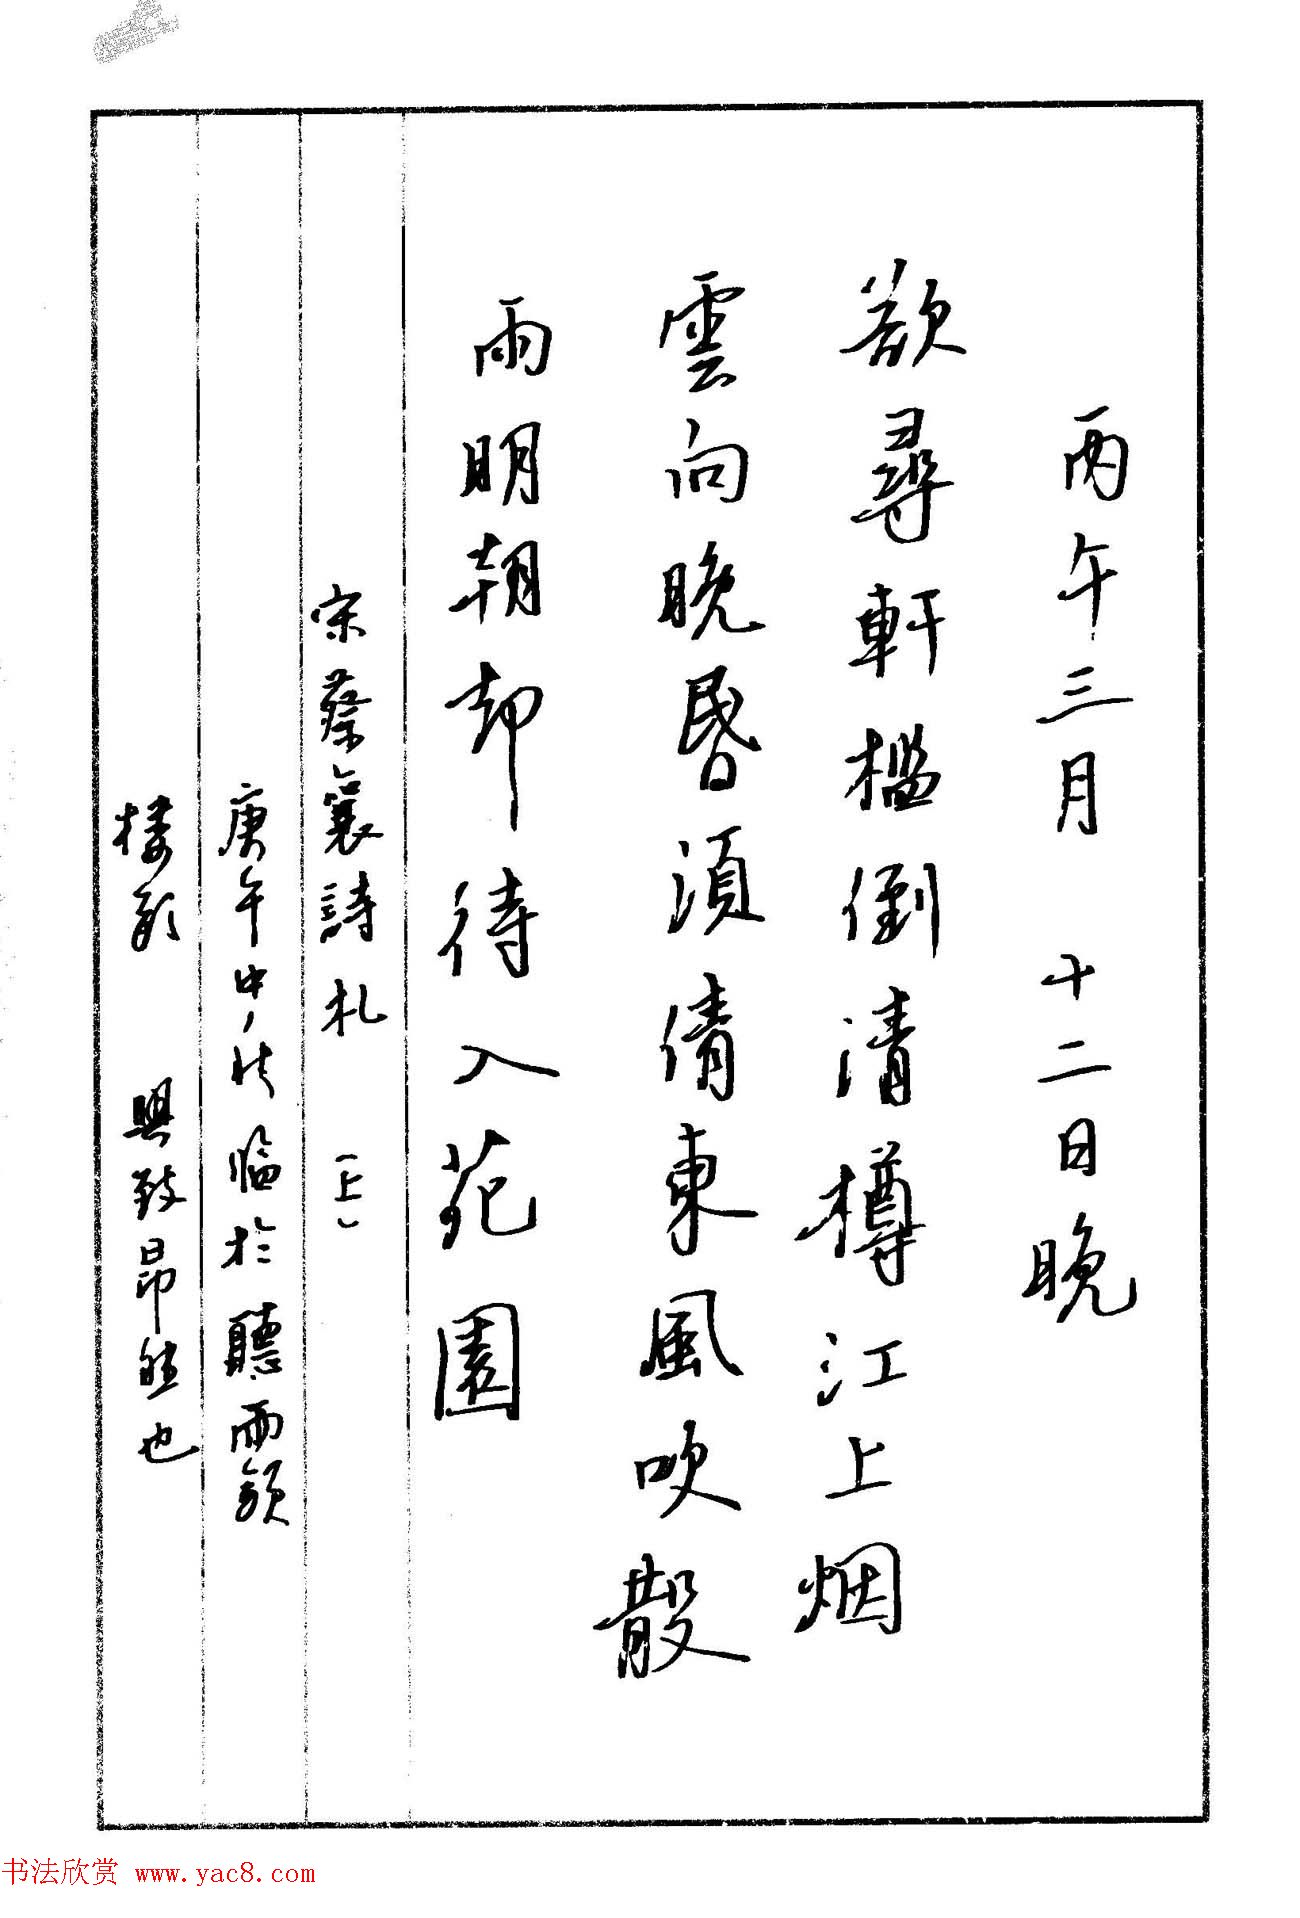 丙午三月 十二日晚
欲尋軒檻倒清樽江上烟
雲向晚昏須倩東風吹散
雨明朝却待入花園
宋蔡襄詩札 (上)
庚午中秋临於聽雨頟
楼新 興致昂然也
书法欣赏 www.yac8.com